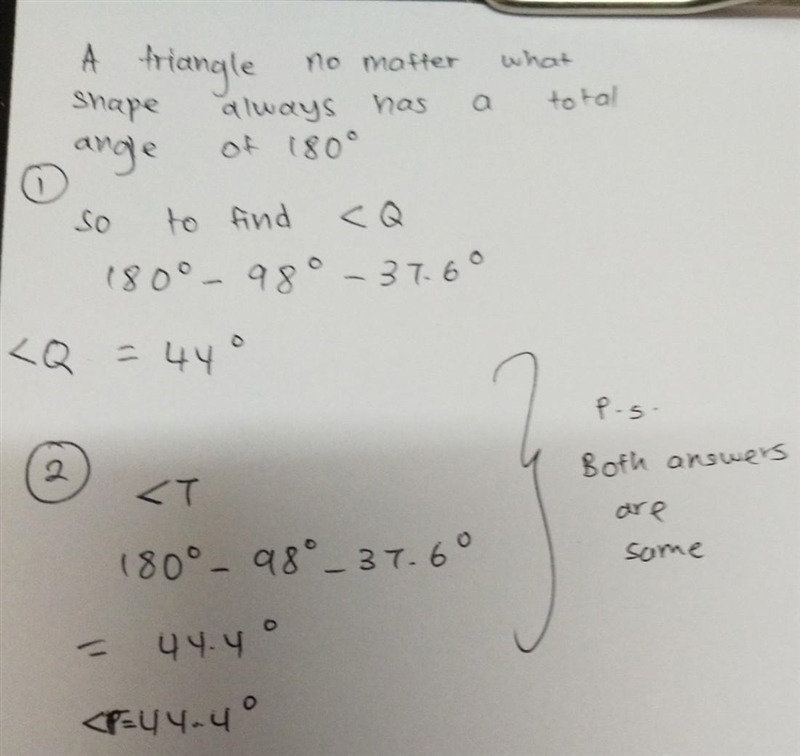 A triangle no matter what
shape always has a total
angle of 180°
①
so to find <Q
180° - 98° - 37.6°
<Q = 44°
②
<T
180° - 98° - 37.6°
= 44.4°
<T=44.4°
P.S.
Both answers
are
same